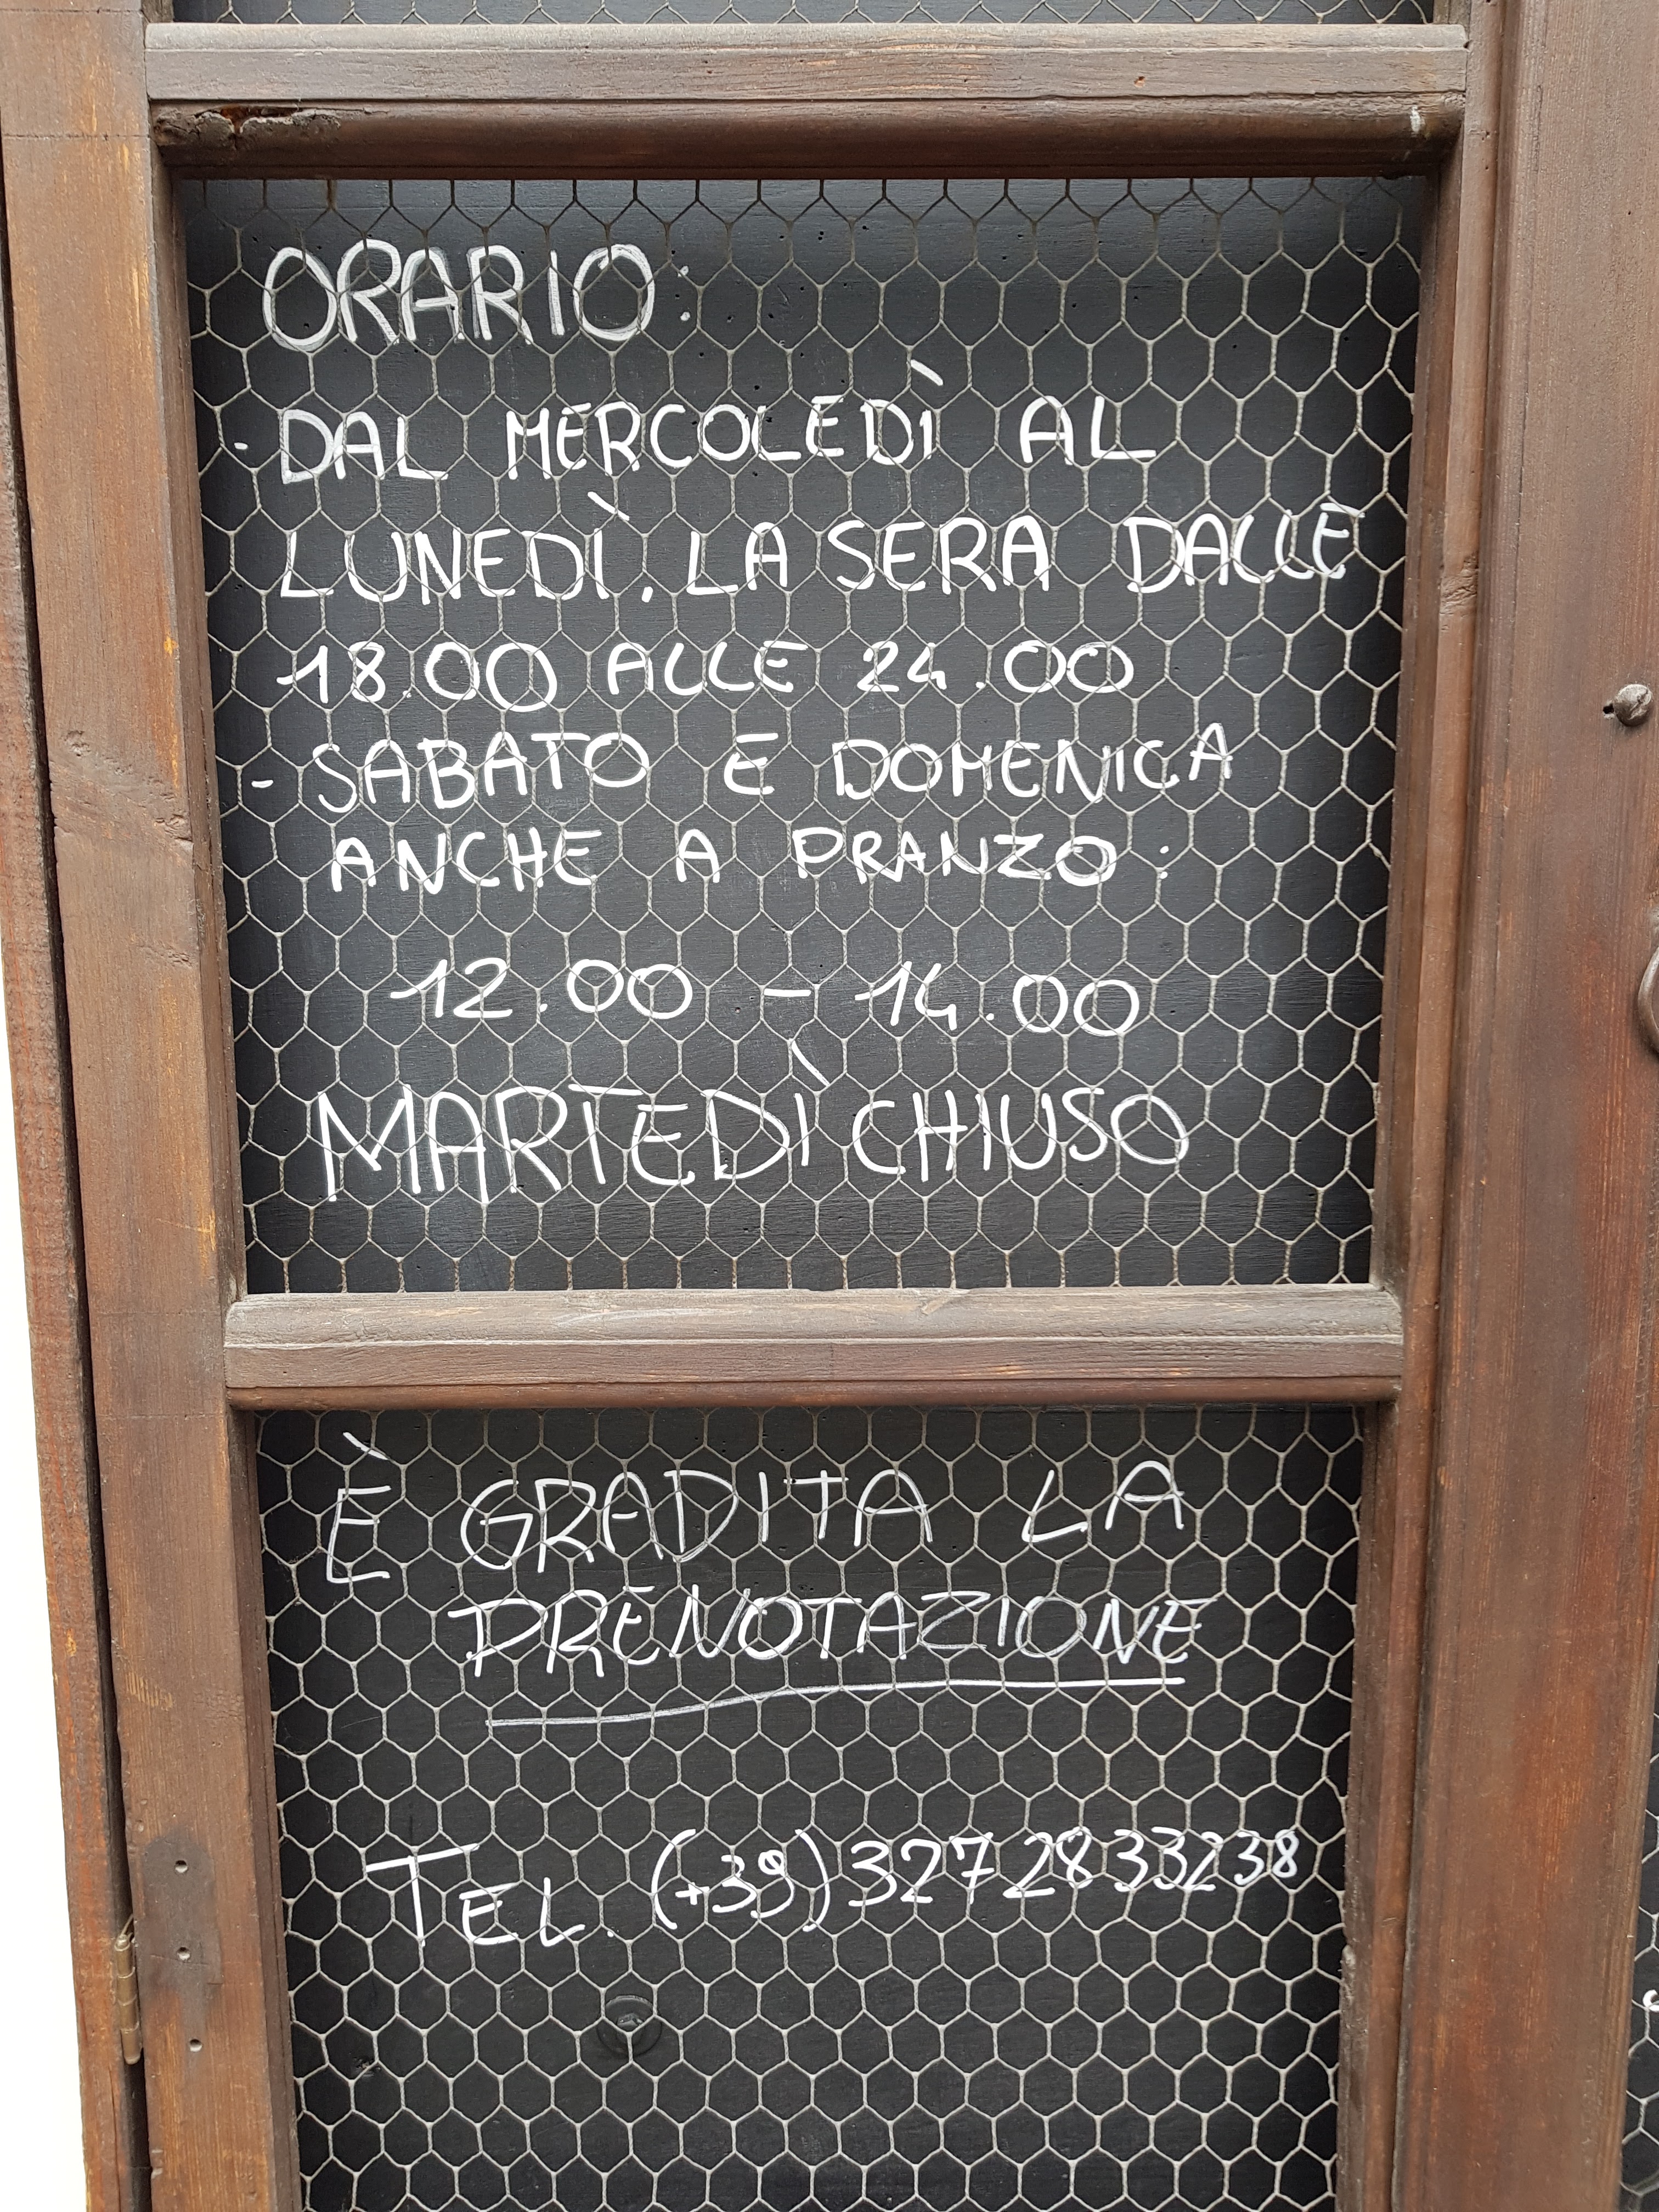 ORARIO:
- DAL MERCOLEDÌ AL
LUNEDÌ, LA SERA DALLE
18.00 ALLE 24.00
- SABATO E DOMENICA
ANCHE A PRANZO:
12.00 - 14.00
MARTEDÌ CHIUSO
È GRADITA LA
PRENOTAZIONE
TEL. (+39) 327 2833238